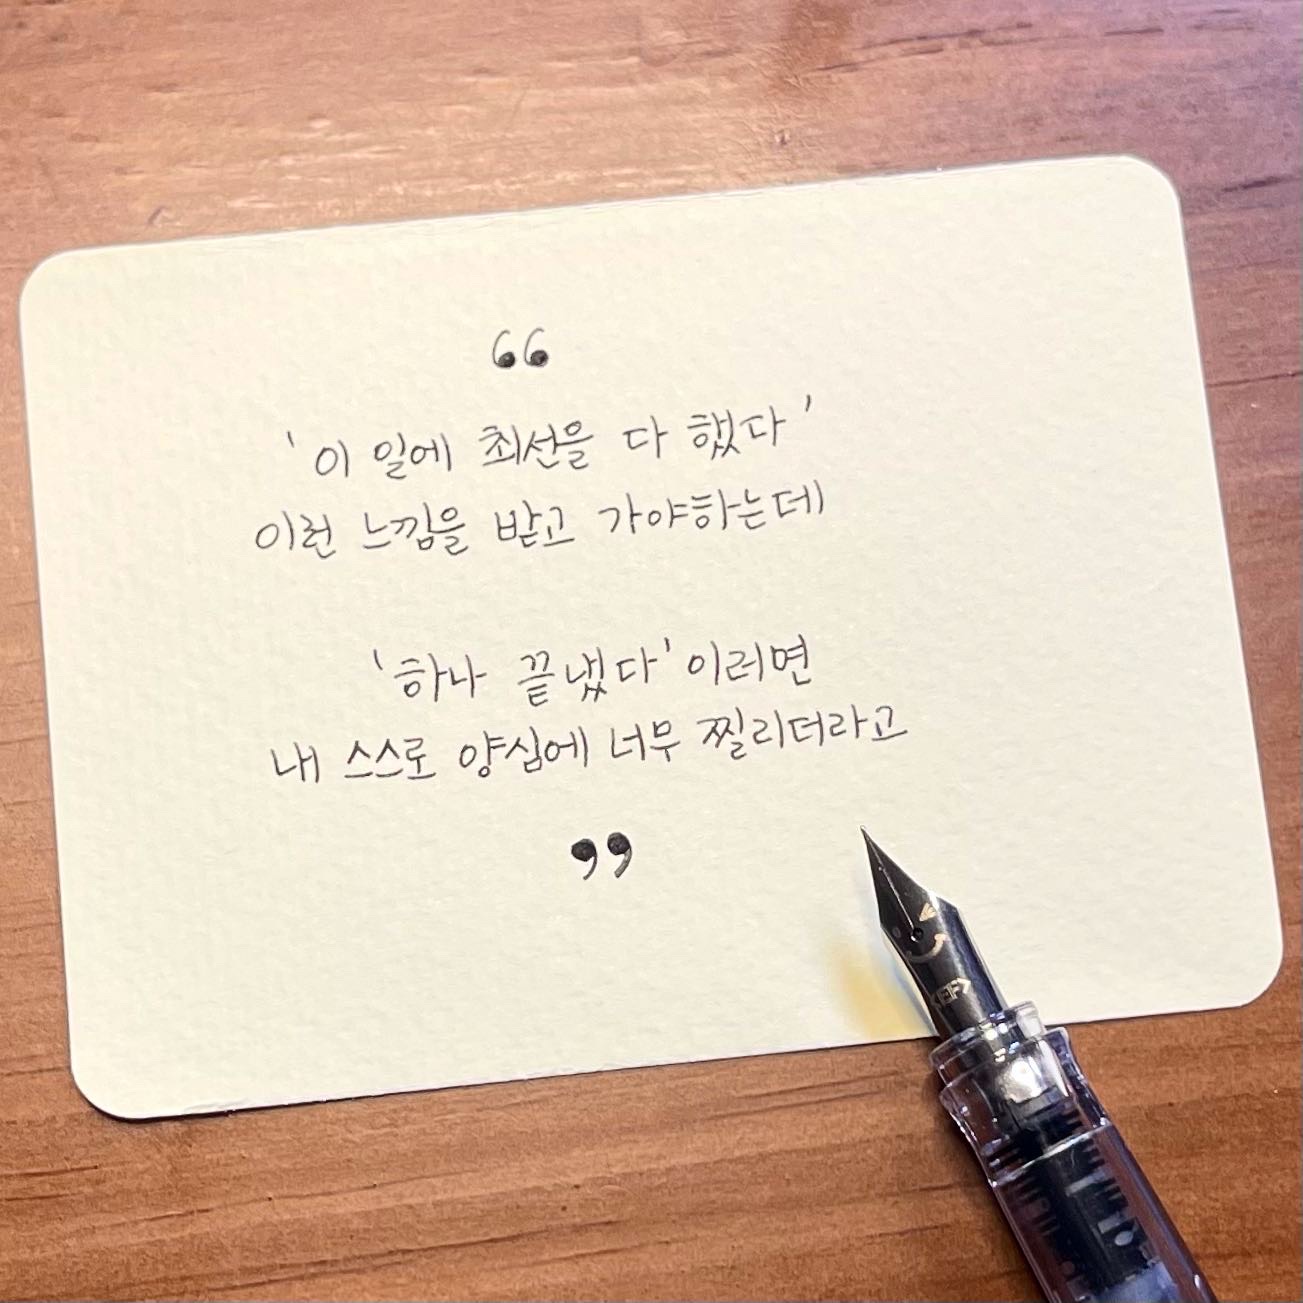 “
'이 일에 최선을 다 했다'
이런 느낌을 받고 가야하는데
'하나 끝냈다' 이러면
내 스스로 양심에 너무 찔리더라고
”
<EF>